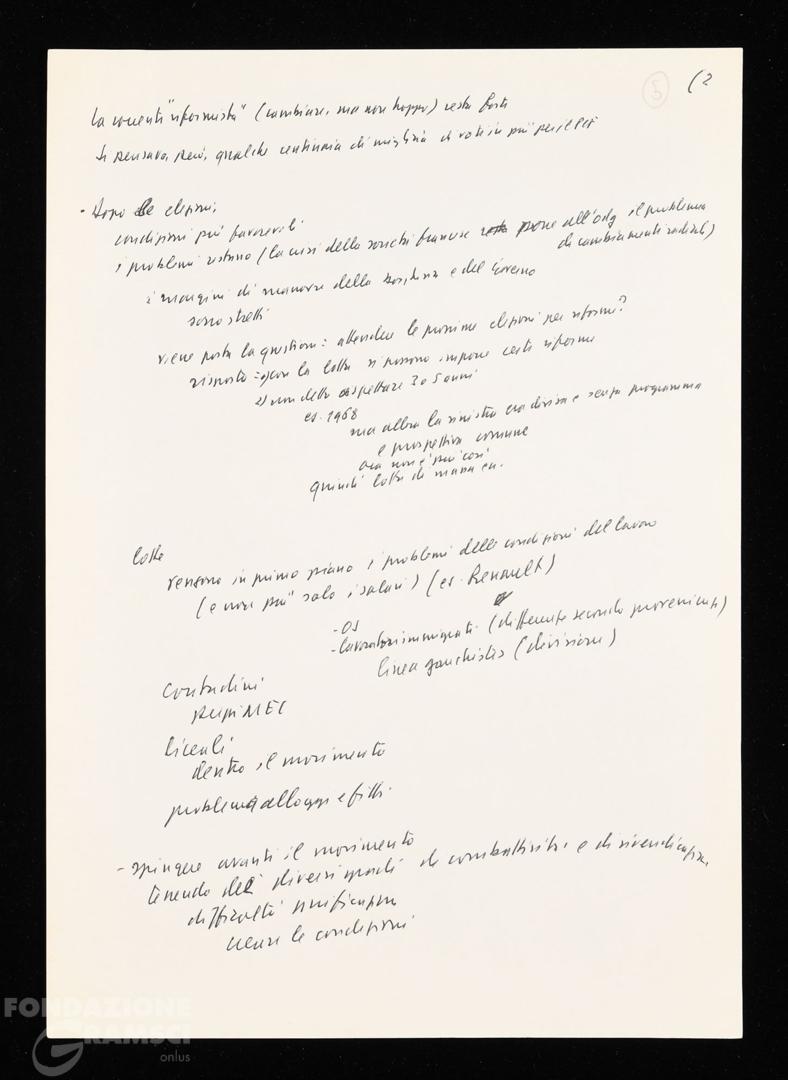 5
(2
la corrente "riformista" (cambiare, ma non troppo) resta forte
Si pensava, però, qualche centinaia di migliaia di voti in più per il PCF
- Dopo le elezioni,
condizioni più favorevoli
i problemi restano (la crisi della società francese pone all'odg il problema
di cambiamenti radicali)
i margini di manovra della borghesia e del Governo
sono stretti
viene posta la questione: attendere le prossime elezioni per riforme?
risposta = con la lotta si possono imporre certe riforme
2) non detto aspettare 3 o 5 anni
es. 1968
ma allora la sinistra era divisa e senza programma
e prospettiva comune
ora non è più così
quindi lotte di massa
lotte
vengono in primo piano i problemi delle condizioni del lavoro
(e non più solo i salari) (es. Renault)
- OS
- lavoratori immigrati (differente secondo provenienza)
linea gauchista (divisione)
contadini
prezzi MEC
liceali
dentro il movimento
problema alloggi e fitti
- spingere avanti il movimento
tenendo dei diversi gradi di combattività e di rivendicazione
difficoltà unificazione
creare le condizioni
FONDAZIONE
GRAMSCI
onlus